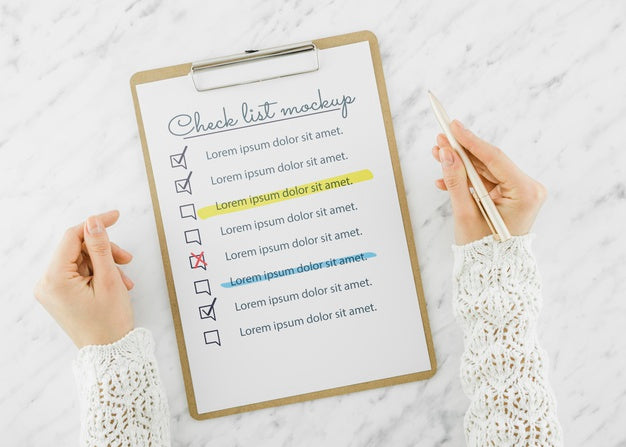 Check list mockup
Lorem ipsum dolor sit amet.
Lorem ipsum dolor sit amet.
Lorem ipsum dolor sit amet.
Lorem ipsum dolor sit amet.
Lorem ipsum dolor sit amet.
Lorem ipsum dolor sit amet.
Lorem ipsum dolor sit amet.
Lorem ipsum dolor sit amet.